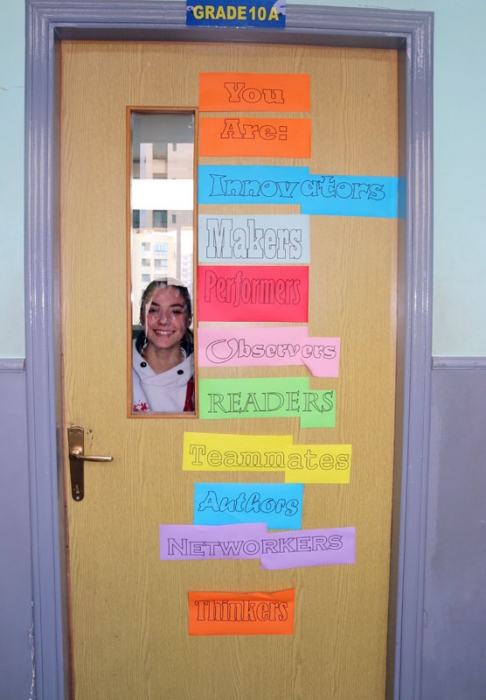 GRADE 10 A
You
Are:
Innovators
Makers
Performers
Observers
READERS
Teammates
Authors
NETWORKERS
Thinkers